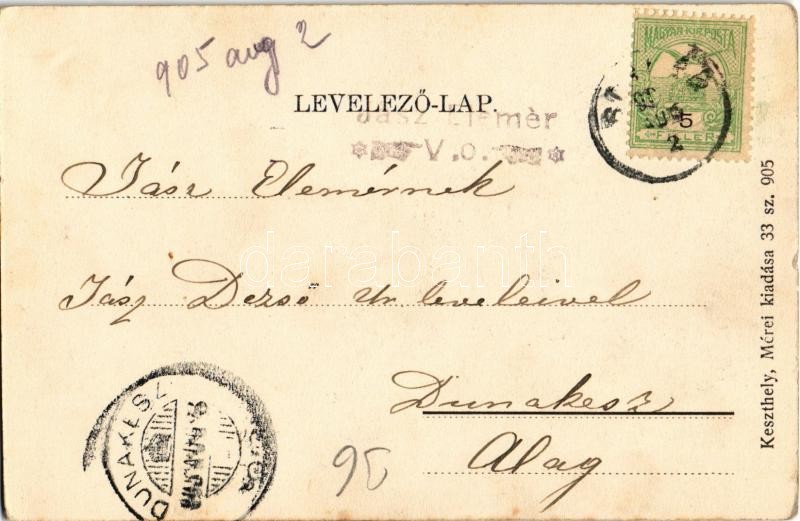 905 aug 2
MAGYAR KIR. POSTA
LEVELEZŐ-LAP.
5
FILLÉR
2
Jász Elemèr
V.o.
Jász Elemérnek
Jász Dezső úr leveleivel
Dunakesz
Alag
DUNAKESZ
95
Keszthely, Mérei kiadása 33 sz. 905
darabanth